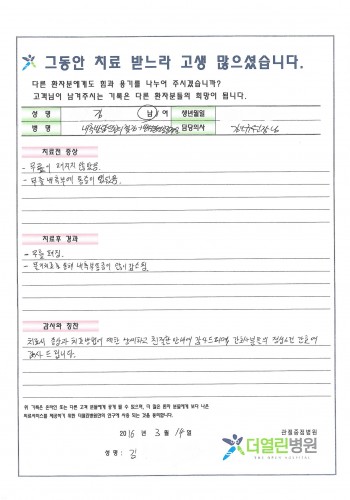 그동안 치료 받느라 고생 많으셨습니다.
다른 환자분에게도 힘과 용기를 나누어 주시겠습니까?
고객님이 남겨주시는 기록은 다른 환자분들의 희망이 됩니다.
성 명 김 남/여 생년월일
병 명 담당의사
치료전 증상
- 무릎이 펴지지 않았음.
- 무릎 내측부에 통증이 있었음.
치료후 경과
- 무릎 펴짐.
감사와 칭찬
치료시 증상과 치료방법에 대한 상세하고 친절한 안내에 감사드리며, 간호사님들의 정성스런 간호에
감사 드립니다.
위 기록은 온라인 또는 다른 고객 분들에게 공개 될 수 있으며, 더 많은 환자 분들에게 보다 나은
의료서비스를 제공하기 위한 더열린병원만의 연구에 사용 되는 것을 동의합니다.
2016 년 3 월 14 일
성 명 : 김
관절중점병원
더열린병원
THE OPEN HOSPITAL